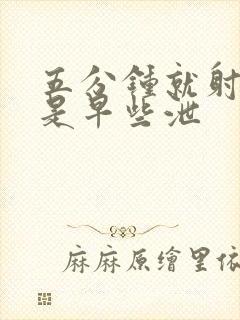 五分鐘就射
是早些泄
麻麻原繪里依